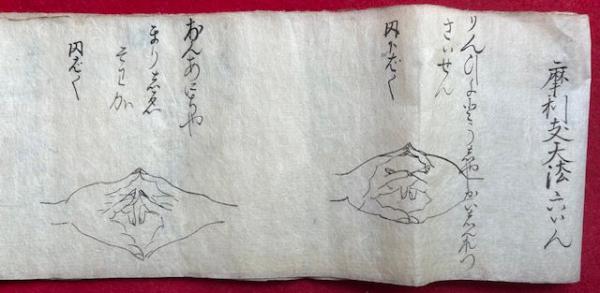 摩利支天法六いん
りんひようとうしやかいちんれつ
さいせん
内ばく
おんあにちや
まりしゑ
そわか
内ばく